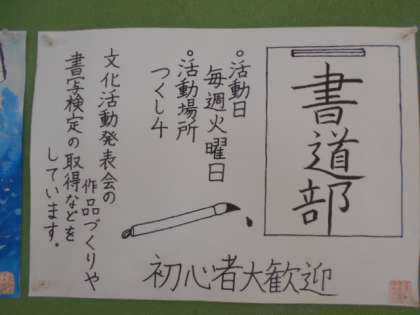 書道部
○活動日
毎週火曜日
○活動場所
つくし4
文化活動発表会の
作品づくりや
書写検定の取得などを
しています。
初心者大歓迎